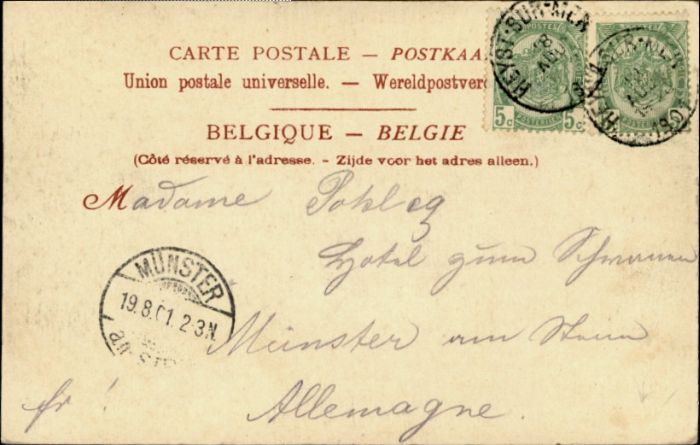 CARTE POSTALE — POSTKAA
Union postale universelle. — Wereldpostver
BELGIQUE — BELGIE
(Côté réservé à l'adresse. - Zijde voor het adres alleen.)
5c 5c
HEYST-SUR-MER
HEYST-SUR-MER
Madame
Hotel zum Schwanen
MÜNSTER
19.8.01. 2-3N.
Münster am Stein
Allemagne.